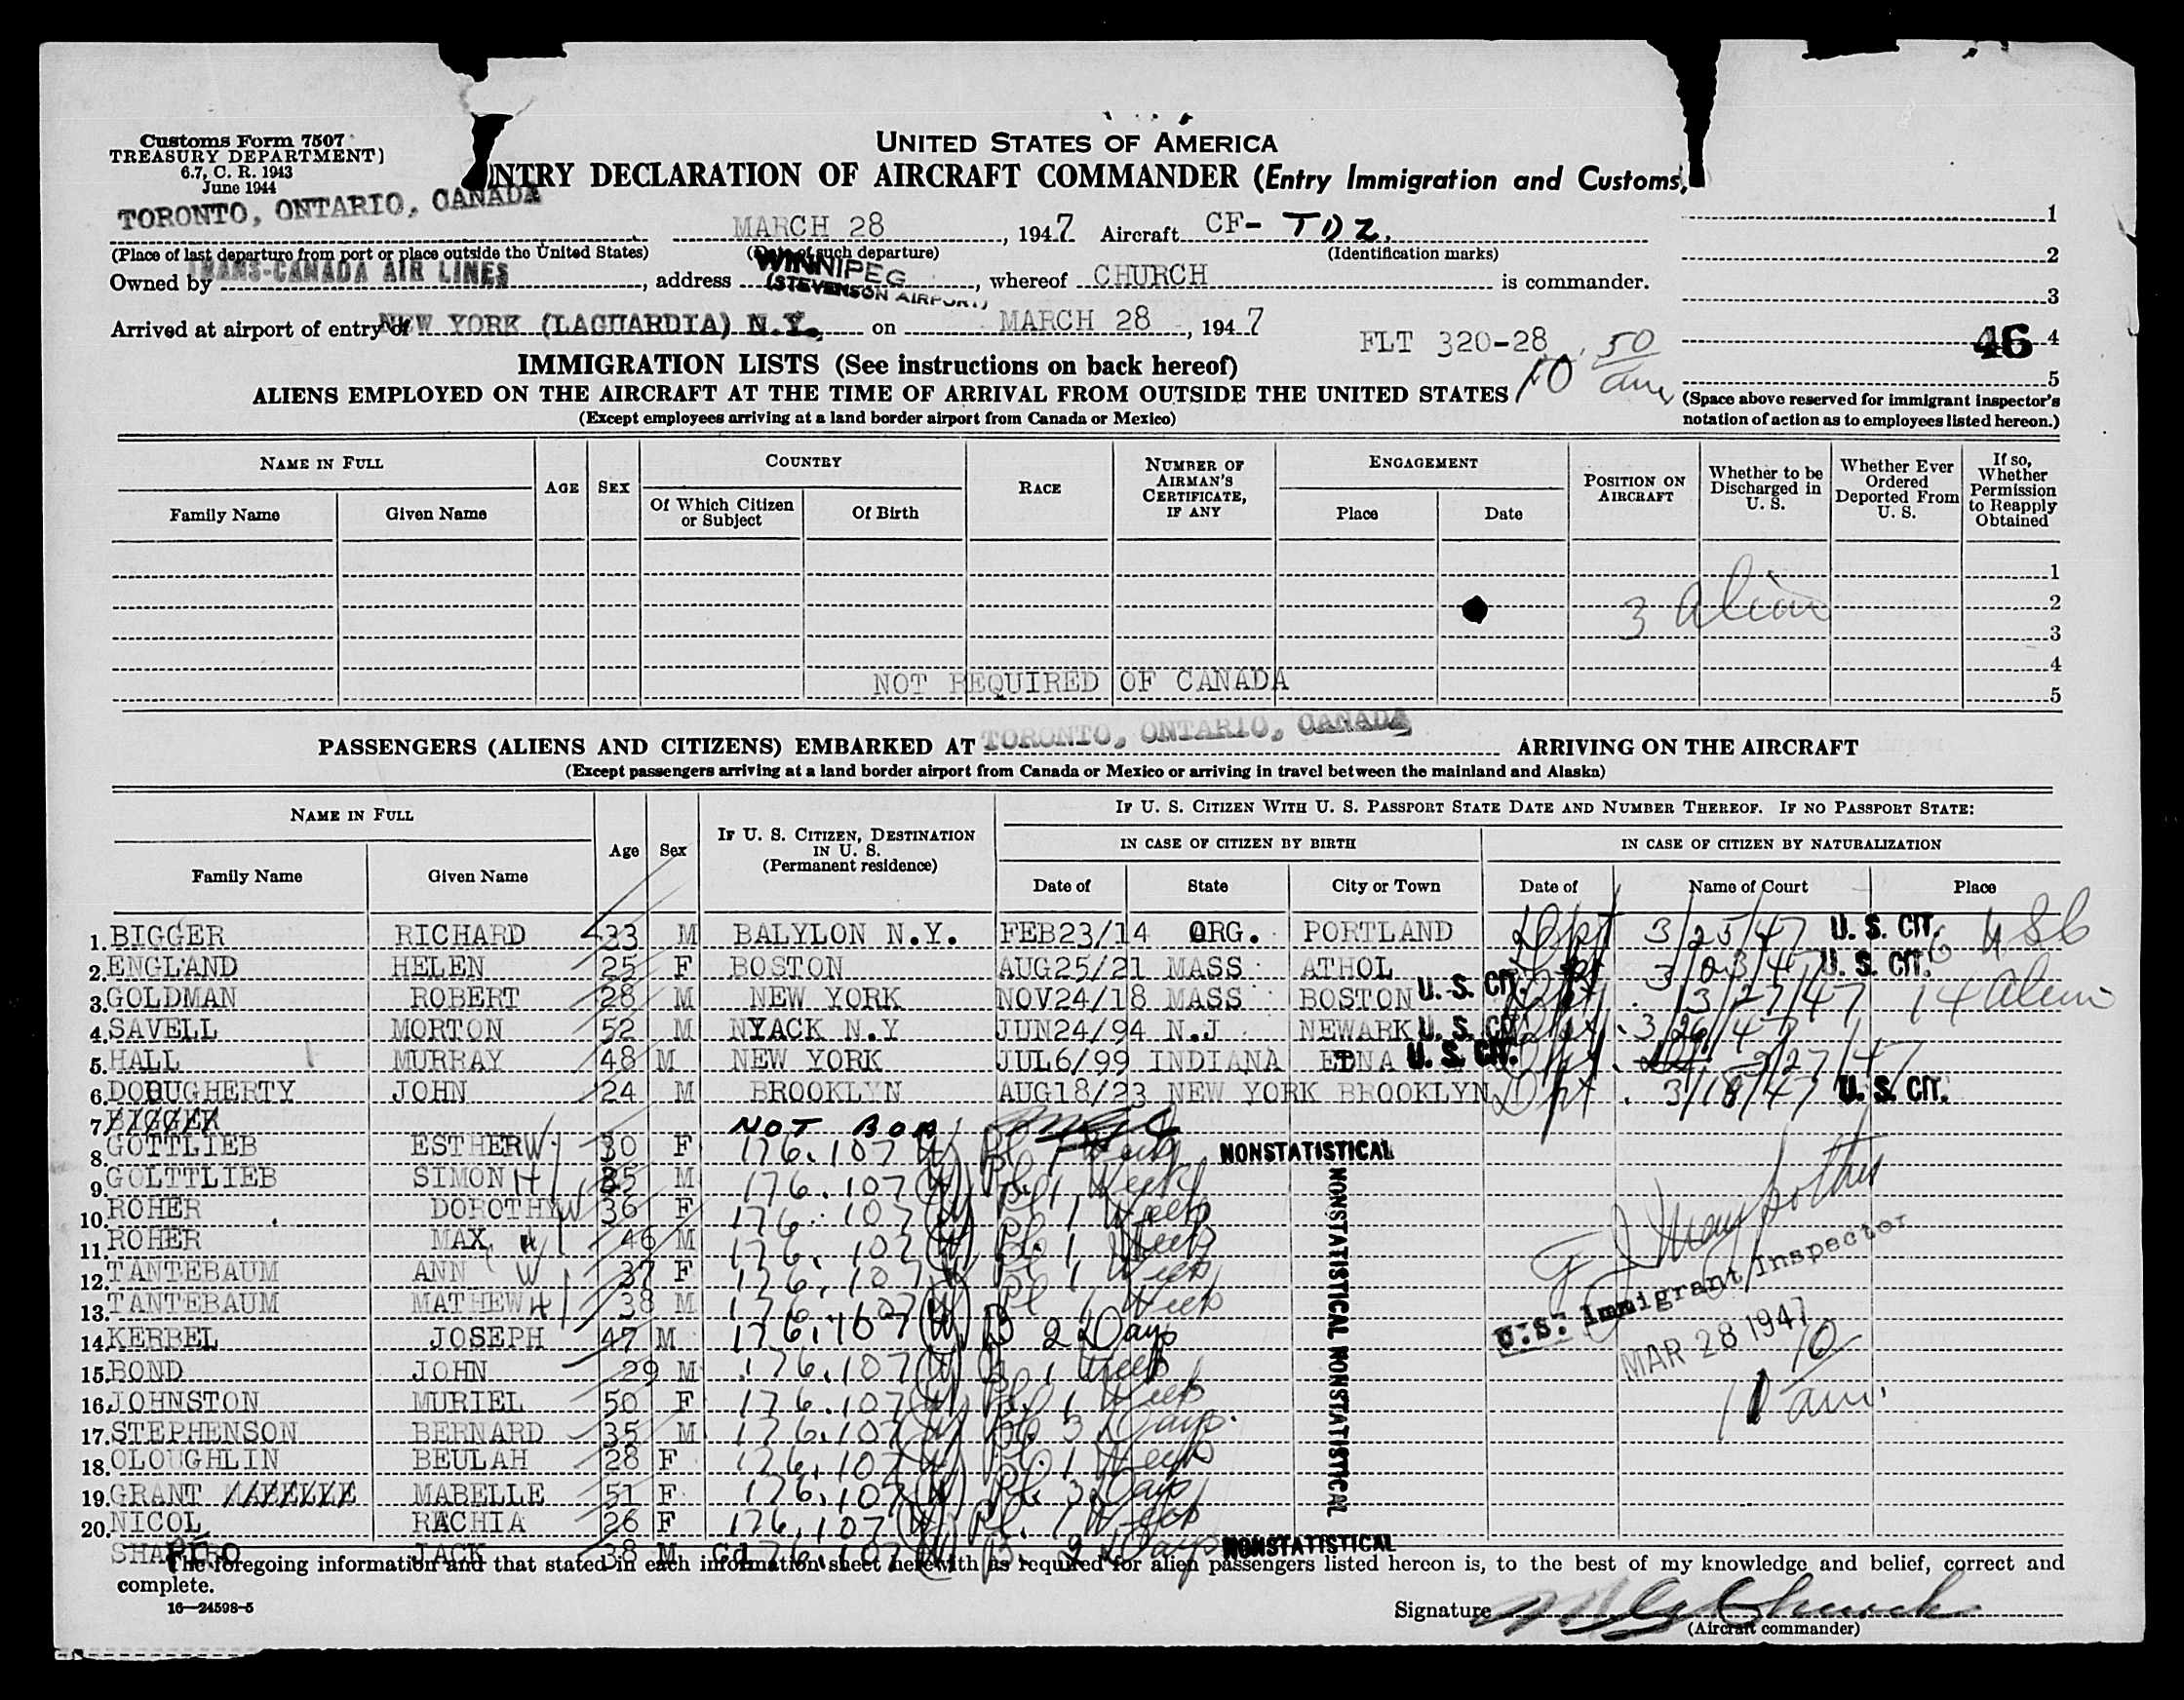 Customs Form 7507
TREASURY DEPARTMENT)
6.7, C. R. 1943
June 1944
UNITED STATES OF AMERICA
NTRY DECLARATION OF AIRCRAFT COMMANDER (Entry Immigration and Customs)
TORONTO, ONTARIO, CANADA MARCH 28, 1947 Aircraft CF- TDZ. 1
(Place of last departure from port or place outside the United States) (Date of such departure) (Identification marks) 2
Owned by TRANS-CANADA AIR LINES, address WINNIPEG (STEVENSON AIRPORT), whereof CHURCH is commander. 3
Arrived at airport of entry of NEW YORK (LAGUARDIA) N.Y. on MARCH 28, 1947 FLT 320-28 46 4
IMMIGRATION LISTS (See instructions on back hereof) 10 50 am 5
ALIENS EMPLOYED ON THE AIRCRAFT AT THE TIME OF ARRIVAL FROM OUTSIDE THE UNITED STATES (Space above reserved for immigrant inspector's
(Except employees arriving at a land border airport from Canada or Mexico) notation of action as to employees listed hereon.)
NAME IN FULL AGE SEX COUNTRY RACE NUMBER OF AIRMAN'S CERTIFICATE, IF ANY ENGAGEMENT POSITION ON AIRCRAFT Whether to be Discharged in U. S. Whether Ever Ordered Deported From U. S. If so, Whether Permission to Reapply Obtained
Family Name Given Name Of Which Citizen or Subject Of Birth Place Date
1
2
3 alien
3
4
NOT REQUIRED OF CANADA 5
PASSENGERS (ALIENS AND CITIZENS) EMBARKED AT TORONTO, ONTARIO, CANADA ARRIVING ON THE AIRCRAFT
(Except passengers arriving at a land border airport from Canada or Mexico or arriving in travel between the mainland and Alaska)
NAME IN FULL Age Sex IF U. S. CITIZEN, DESTINATION IN U. S. (Permanent residence) IF U. S. CITIZEN WITH U. S. PASSPORT STATE DATE AND NUMBER THEREOF. IF NO PASSPORT STATE:
IN CASE OF CITIZEN BY BIRTH IN CASE OF CITIZEN BY NATURALIZATION
Family Name Given Name Date of State City or Town Date of Name of Court Place
1. BIGGER RICHARD 33 M BALYLON N.Y. FEB23/14 ORG. PORTLAND Dpt 3/25/47 U. S. CIT. 6 USC
2. ENGLAND HELEN 25 F BOSTON AUG25/21 MASS ATHOL U. S. CIT.
3. GOLDMAN ROBERT 28 M NEW YORK NOV24/18 MASS BOSTON U. S. CIT. 3/27/47 14 alien
4. SAVELL MORTON 52 M NYACK N.Y JUN24/94 N.J NEWARK U. S. CIT. 3/26/47
5. HALL MURRAY 48 M NEW YORK JUL6/99 INDIANA EDNA U. S. CIT. Dpt. 3/27/47
6. DOUGHERTY JOHN 24 M BROOKLYN AUG18/23 NEW YORK BROOKLYN Dpt. 3/18/47 U. S. CIT.
7. BIGGER NOT BOR
8. GOTTLIEB ESTHER W 30 F 176.107 (W) Pl 1 Week NONSTATISTICAL
9. GOLTTLIEB SIMON H 35 M 176.107 (W) Pl. 1 Week
10. ROHER DOROTHY W 36 F 176.107 (W) Pl 1 Week
11. ROHER MAX H 46 M 176.107 (W) Pl. 1 Week
12. TANTEBAUM ANN W 37 F 176.107 (W) Pl 1 Week
13. TANTEBAUM MATHEW H 38 M 176.107 (W) Pl 1 Week
14. KERBEL JOSEPH 47 M 176.107 (W) B 2 Days
15. BOND JOHN 29 M 176.107 (W) 1 Week
16. JOHNSTON MURIEL 50 F 176.107 (W) Pl. 1 Week
17. STEPHENSON BERNARD 35 M 176.107 (W) 3 Days.
18. OLOUGHLIN BEULAH 28 F 176.107 (W) Pl. 1 Week
19. GRANT MABELLE MABELLE 51 F 176.107 (W) Pl. 3 Days
20. NICOL RACHIA 26 F 176.107 (W) Pl. 1 Week
SHAPIRO JACK 38 M Cd 176.107 (W) B. 2 Days NONSTATISTICAL
NONSTATISTICAL NONSTATISTICAL
U.S. Immigrant Inspector
MAR 28 1947
11 10 am.
The foregoing information and that stated in each information sheet herewith as required for alien passengers listed hereon is, to the best of my knowledge and belief, correct and
complete.
16—24598-5
Signature Church
(Aircraft commander)